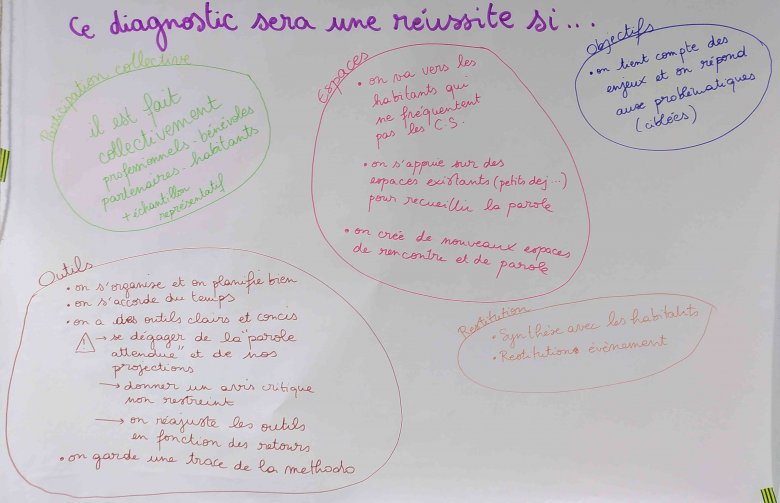 Ce diagnostic sera une réussite si...
Participation collective
il est fait
collectivement
professionnels - bénévoles
partenaires - habitants
+ échantillon
représentatif
Espaces
• on va vers les
habitants qui
ne fréquentent
pas les C.S.
• on s'appuie sur des
espaces existants (petits dej...)
pour recueillir la parole
• on crée de nouveaux espaces
de rencontre et de parole
Objectifs
• on tient compte des
enjeux et on répond
aux problématiques
(ciblées)
Outils
• on s'organise et on planifie bien
• on s'accorde du temps
• on a des outils clairs et concis
! → se dégager de la "parole
attendue" et de nos
projections
→ donner un avis critique
non restreint
→ on réajuste les outils
en fonction des retours
• on garde une trace de la méthodo
Restitution
• Synthèse avec les habitants
• Restitution évènement